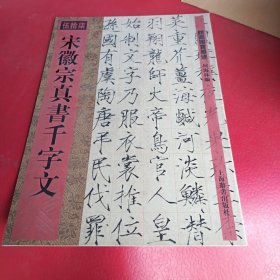 宋徽宗真書千字文
菜重芥薑海鹹河淡鱗潛
羽翔龍師火帝鳥官人皇
始制文字乃服衣裳推位
讓國有虞陶唐弔民伐罪
上海辭書出版社